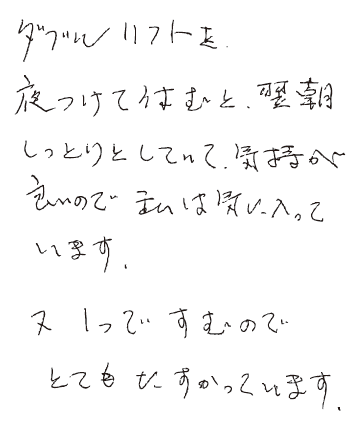 ダブルリフトを
夜つけて休むと、翌朝
しっとりとしていて、気持が
良いので 私は気に入って
います。
又 1つですむので
とても たすかっています。